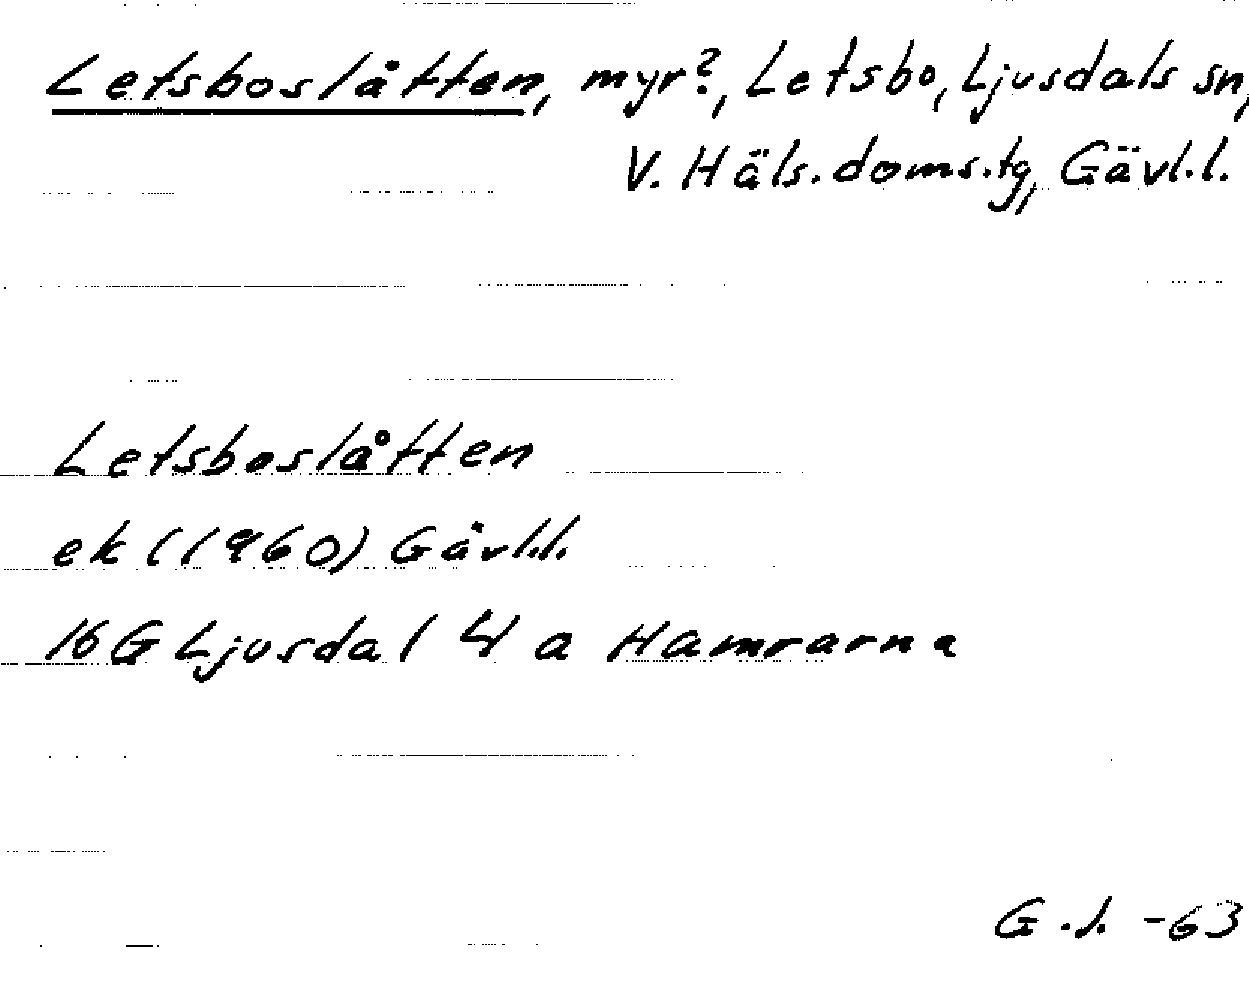 Letsboslåtten, myr?, Letsbo, Ljusdals sn,
V. Häls.doms.tg, Gävl.l.
Letsboslåtten
ek (1960) Gävl.l.
16 G Ljusdal 4 a Hamrarna
G.l. -63